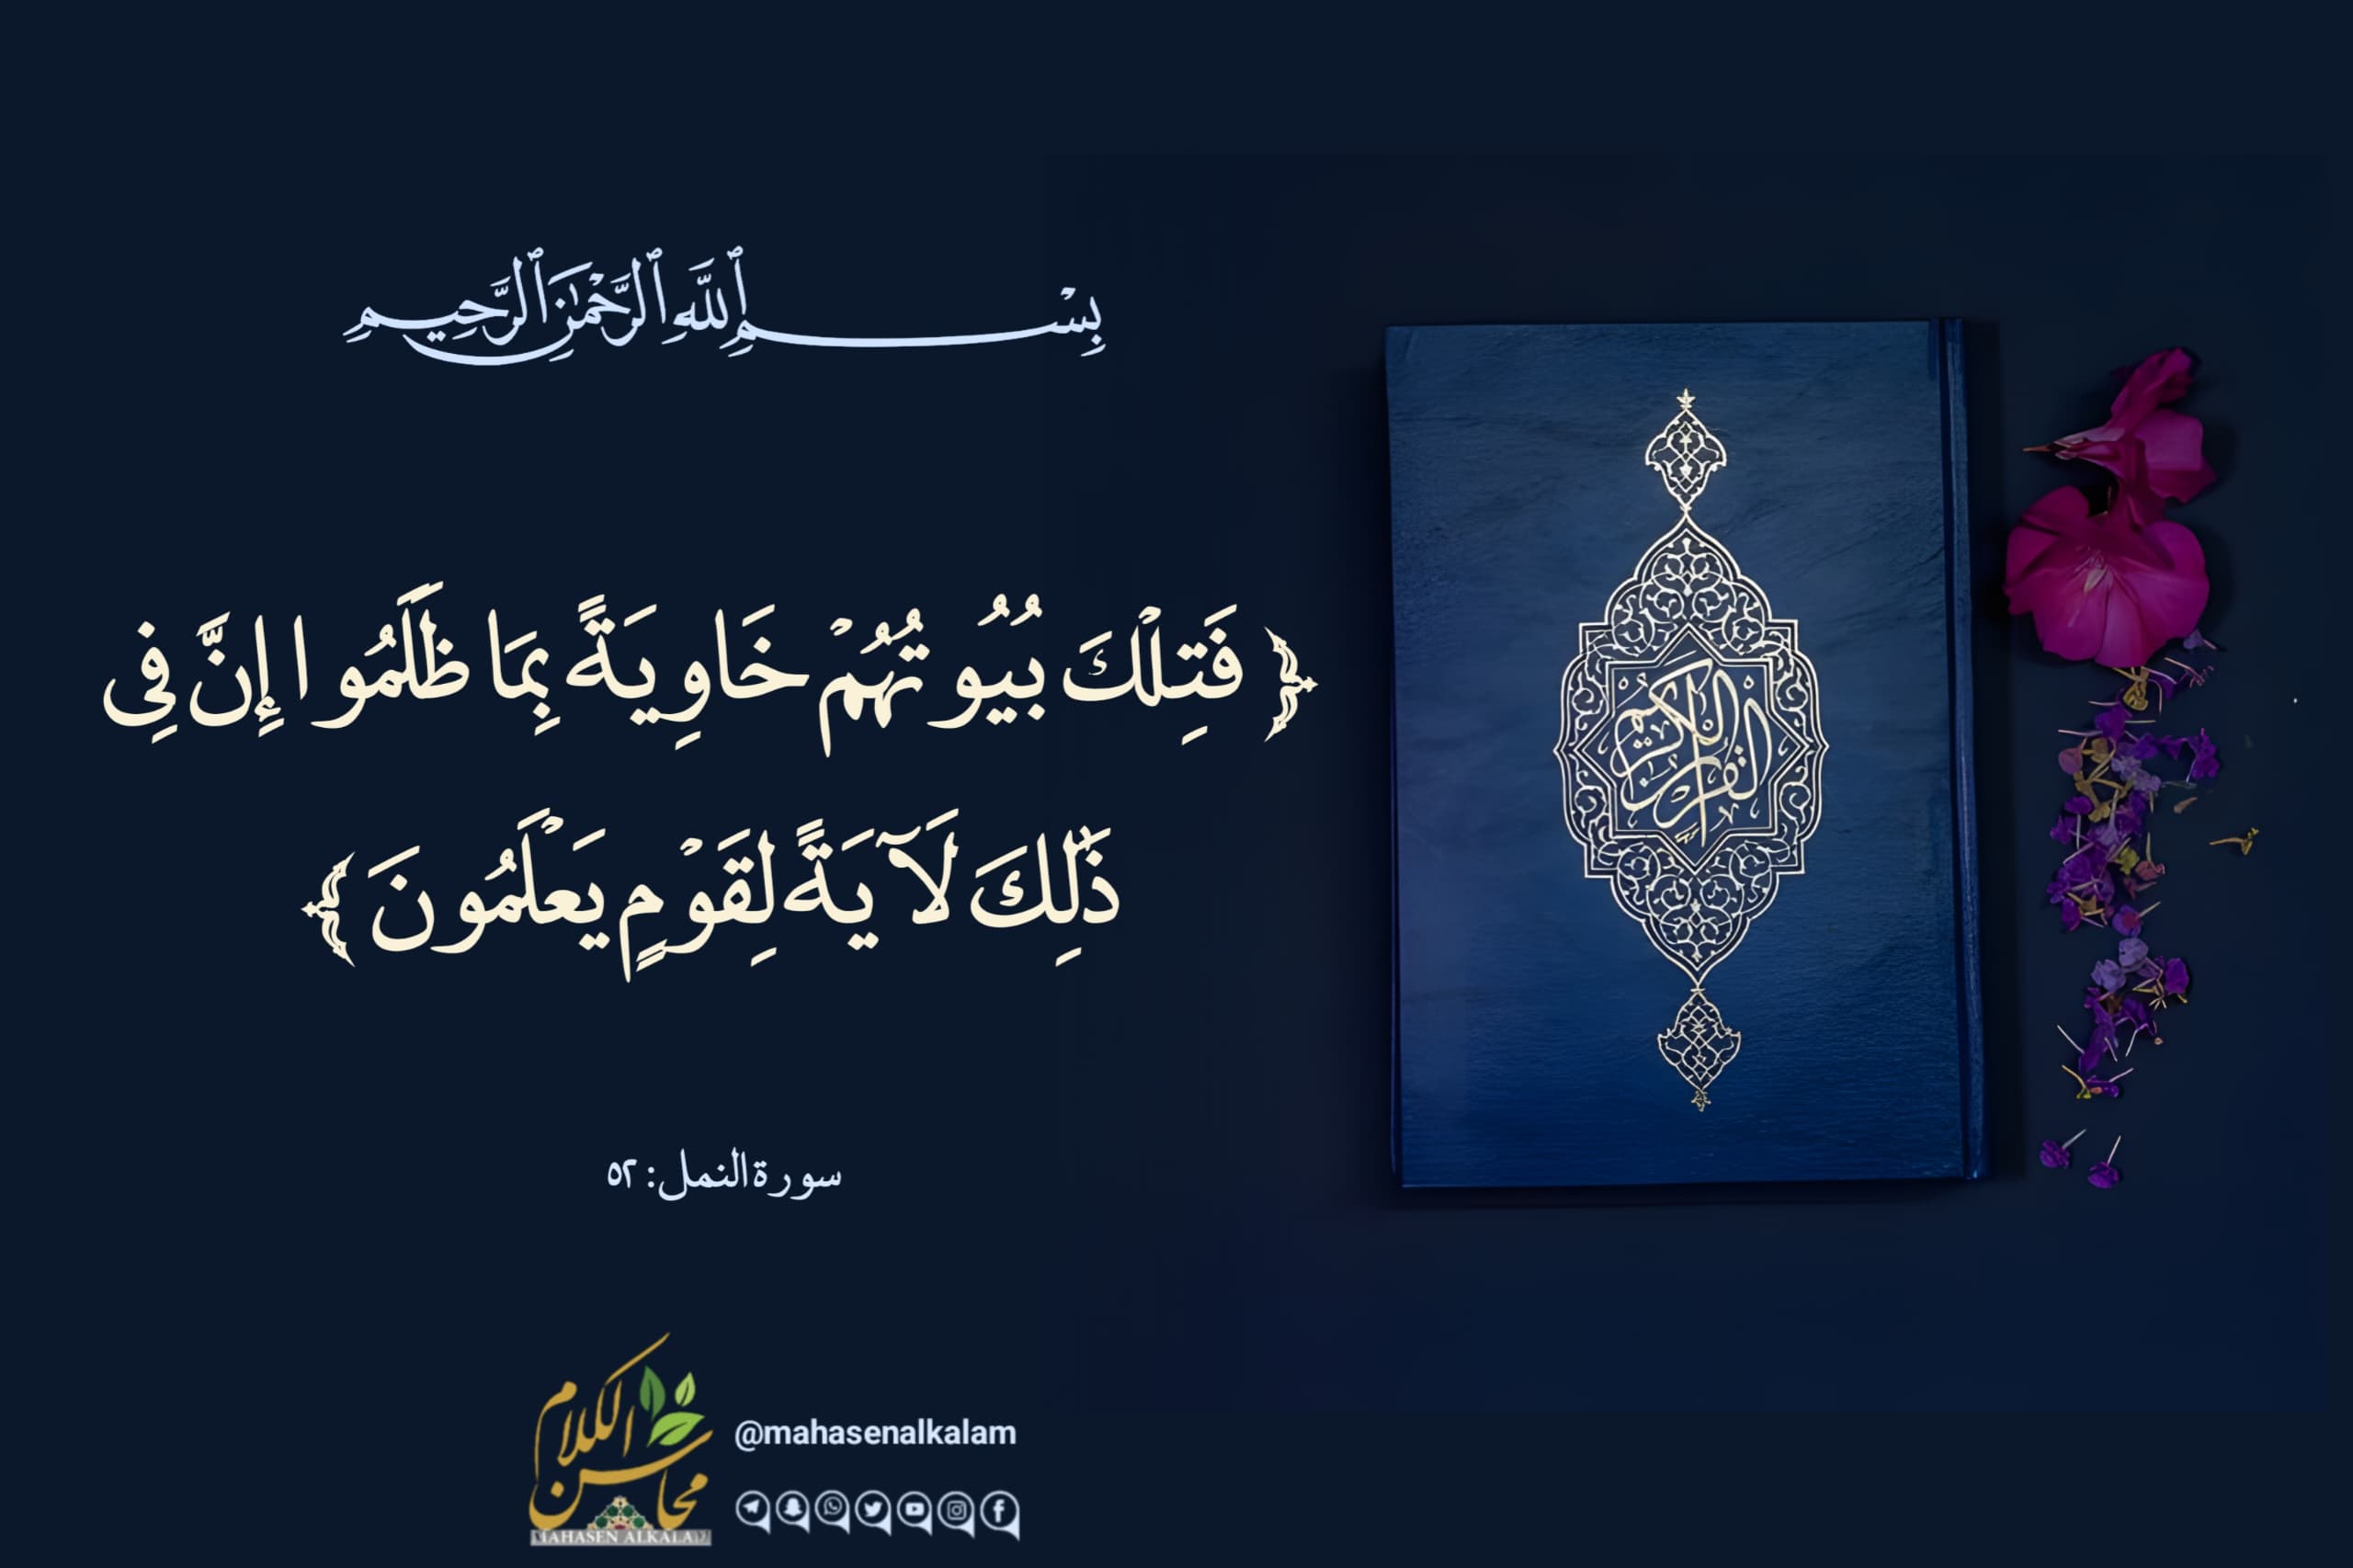 بِسْمِ ٱللَّهِ ٱلرَّحْمَٰنِ ٱلرَّحِيمِ
﴿ فَتِلْكَ بُيُوتُهُمْ خَاوِيَةً بِمَا ظَلَمُوا إِنَّ فِي
ذَٰلِكَ لَآيَةً لِقَوْمٍ يَعْلَمُونَ ﴾
سورة النمل: ٥٢
القرآن الكريم
محاسن الكلام
MAHASEN ALKALAM
@mahasenalkalam